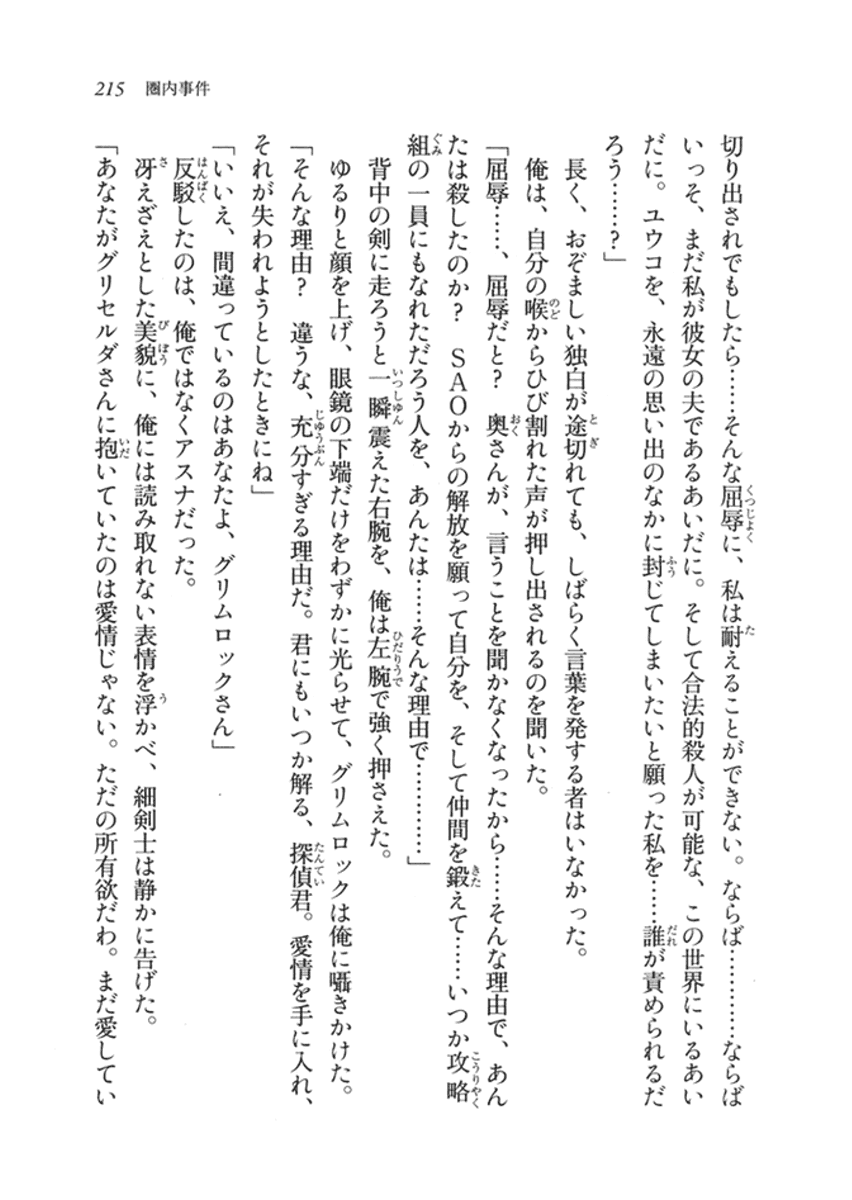 215 圏内事件
切り出されでもしたら……そんな屈辱に、私は耐えることができない。ならば…………ならば
いっそ、まだ私が彼女の夫であるあいだに。そして合法的殺人が可能な、この世界にいるあい
だに。ユウコを、永遠の思い出のなかに封じてしまいたいと願った私を……誰が責められるだ
ろう……？」
長く、おぞましい独白が途切れても、しばらく言葉を発する者はいなかった。
俺は、自分の喉からひび割れた声が押し出されるのを聞いた。
「屈辱……、屈辱だと？　奥さんが、言うことを聞かなくなったから……そんな理由で、あん
たは殺したのか？　ＳＡＯからの解放を願って自分を、そして仲間を鍛えて……いつか攻略
組の一員にもなれただろう人を、あんたは……そんな理由で…………」
背中の剣に走ろうと一瞬震えた右腕を、俺は左腕で強く押さえた。
ゆるりと顔を上げ、眼鏡の下端だけをわずかに光らせて、グリムロックは俺に囁きかけた。
「そんな理由？　違うな、充分すぎる理由だ。君にもいつか解る、探偵君。愛情を手に入れ、
それが失われようとしたときにね」
「いいえ、間違っているのはあなたよ、グリムロックさん」
反駁したのは、俺ではなくアスナだった。
冴えざえとした美貌に、俺には読み取れない表情を浮かべ、細剣士は静かに告げた。
「あなたがグリセルダさんに抱いていたのは愛情じゃない。ただの所有欲だわ。まだ愛してい